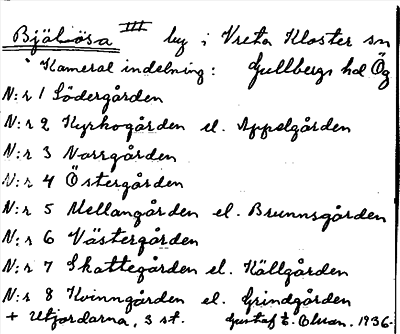 Bjäliösa III by i Vreta Kloster sn
Kameral indelning: Gullbergs hd Ög
N:r 1 Södergården
N:r 2 Kyrkogården el. Appelgården
N:r 3 Norrgården
N:r 4 Östergården
N:r 5 Mellangården el. Brunnsgården
N:r 6 Västergården
N:r 7 Skattegården el. Källgården
N:r 8 Kvinngården el. Grindgården
+ Utjordarna, 3 st. Gustaf E. Olsson. 1936.